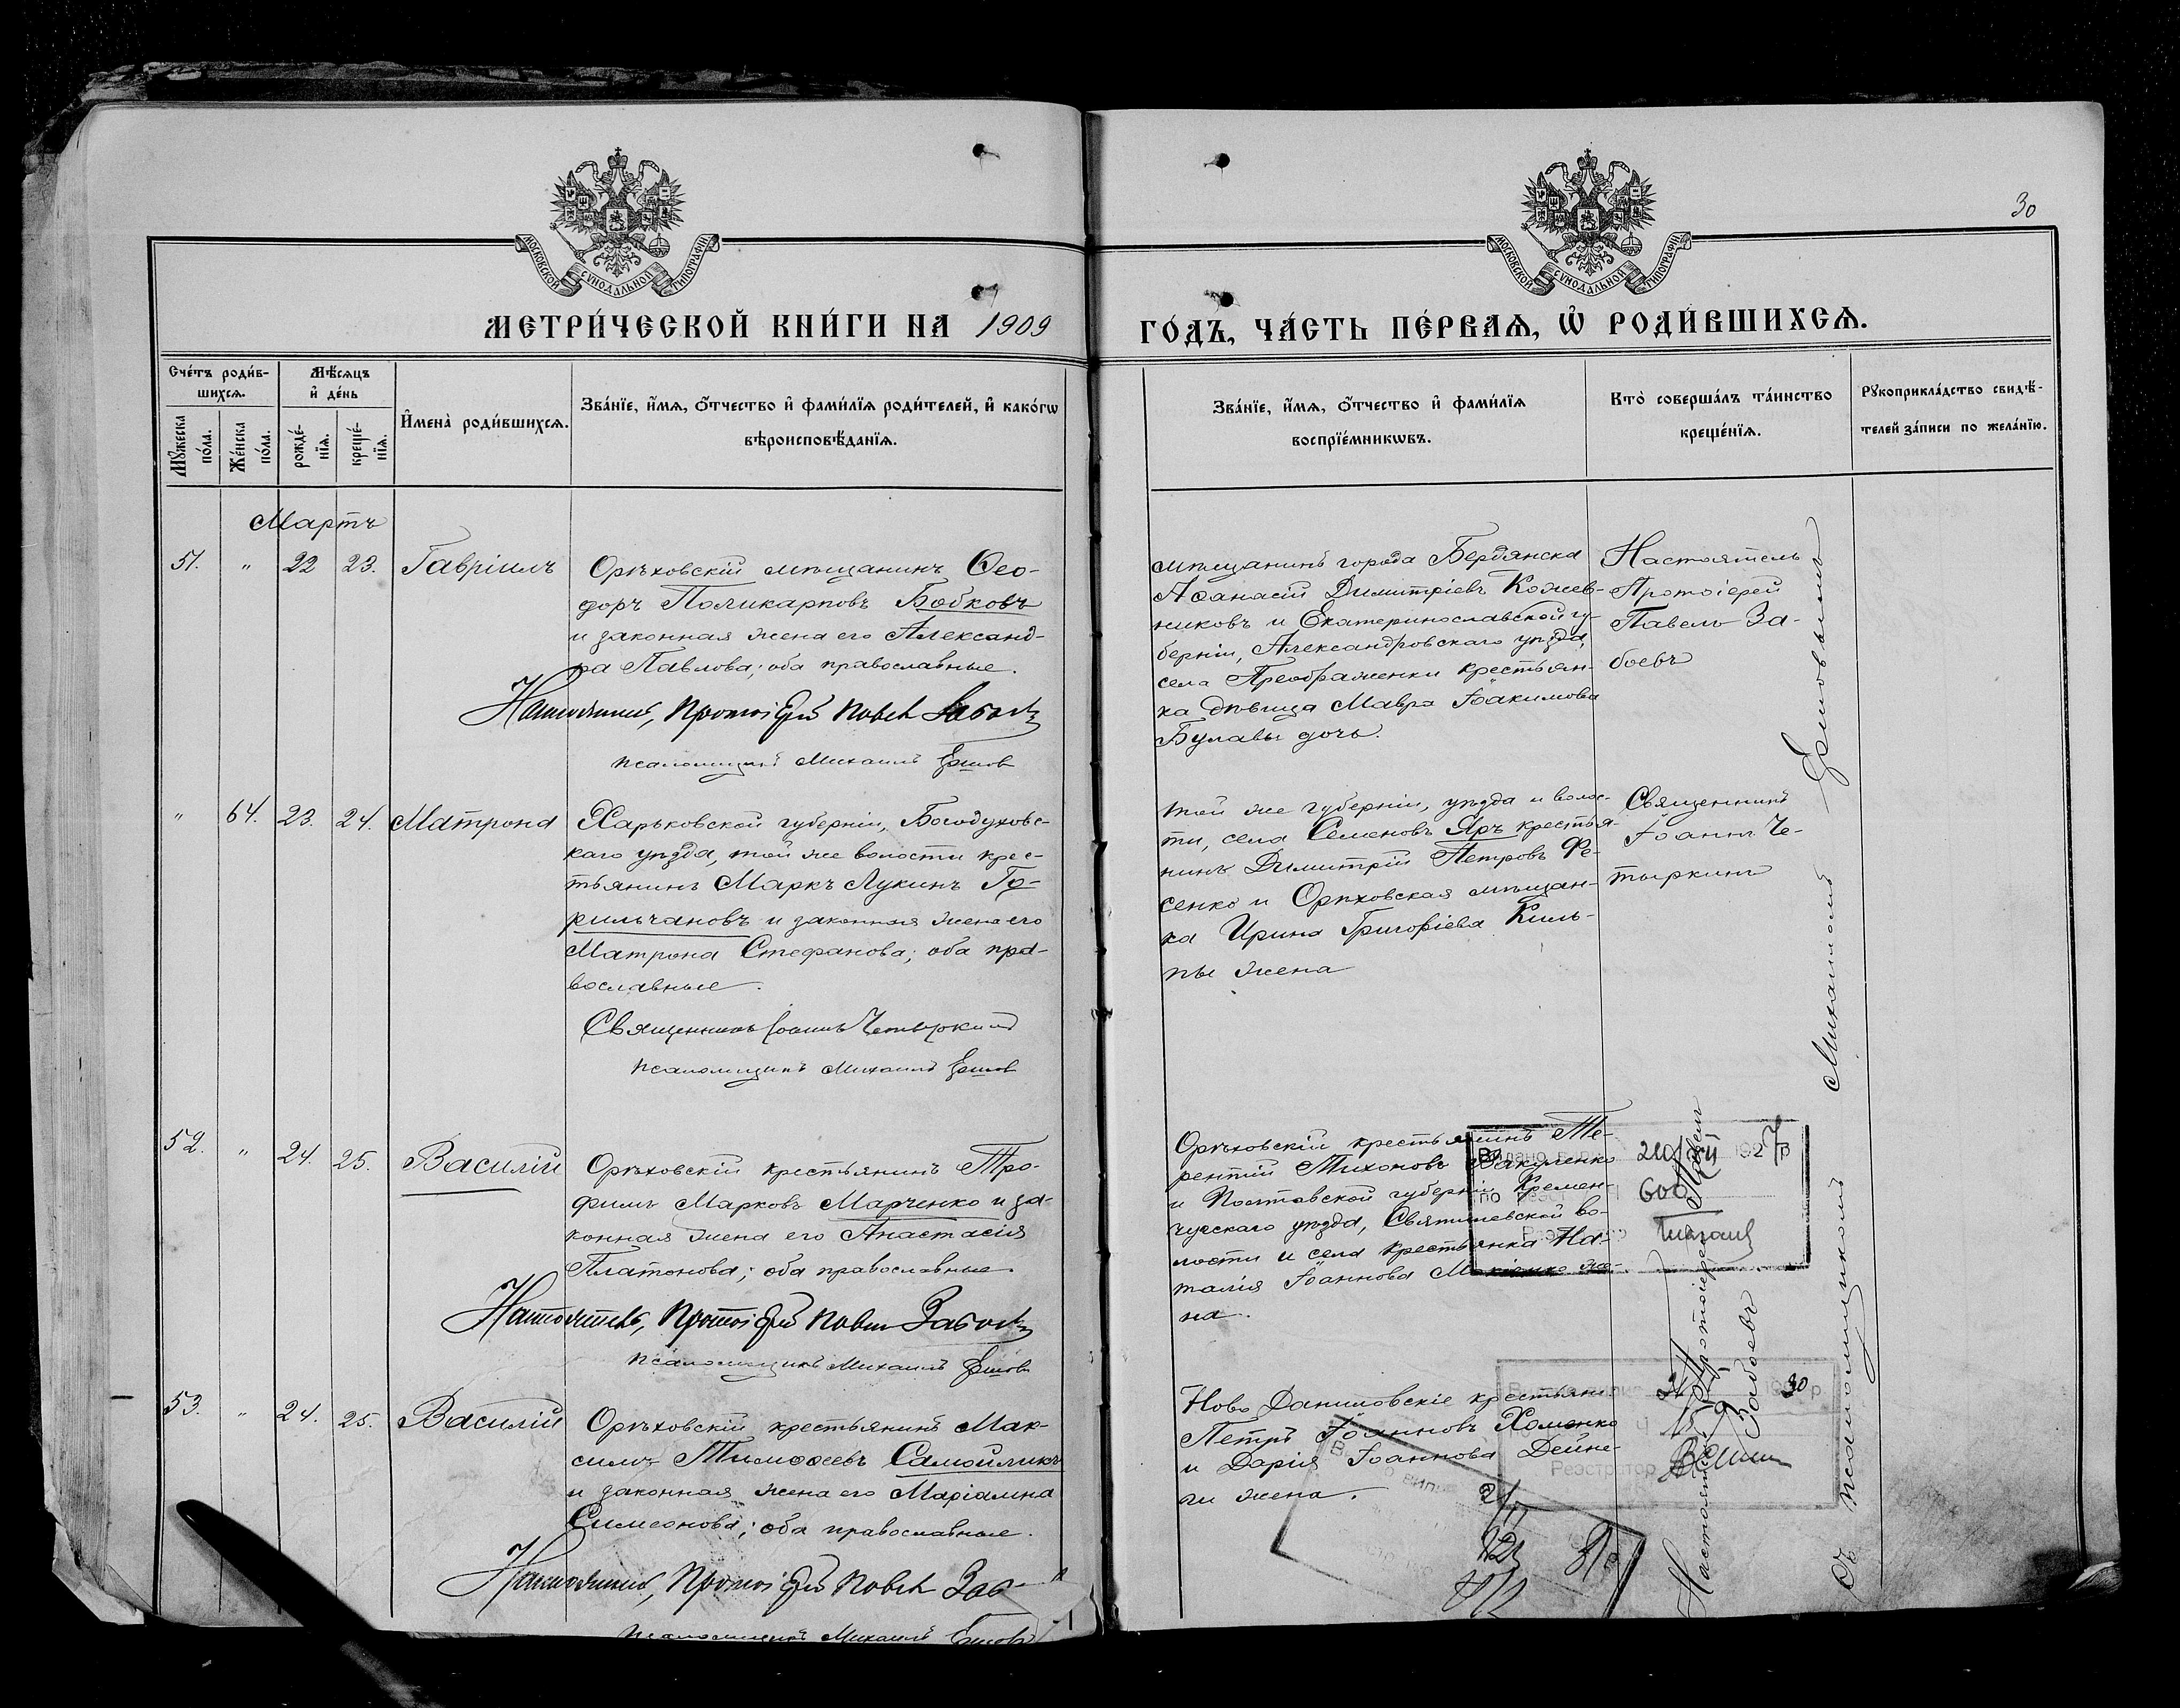 30
МОСКОВСКОЙ СѴНОДАЛЬНОЙ ТИПОГРАФІИ
МОСКОВСКОЙ СѴНОДАЛЬНОЙ ТИПОГРАФІИ
МЕТРИ́ЧЕСКОЙ КНИ́ГИ НА 1909
ГО́ДЪ, ЧА́СТЬ ПЕ́РВАѦ, Ѽ РОДИ́ВШИХСѦ.
Сче́тъ роди́в-
шихсѧ.
Мꙋ́жеска по́ла.
Же́нска по́ла.
Мѣ́сѧцъ
и҆ де́нь
рожде́-
нїѧ.
креще́-
нїѧ.
И҆мена̀ роди́вшихсѧ.
Зва́нїе, и҆́мѧ, о҆́тчество и҆ фами́лїѧ роди́телей, и҆ како́гѡ
вѣроисповѣ́данїѧ.
Зва́нїе, и҆́мѧ, о҆́тчество и҆ фами́лїѧ
воспрїе́мникѡвъ.
Кто̀ соверша́лъ та́инство
креще́нїѧ.
Рꙋкоприкла́дство свидѣ́-
телей за́писи по жела́нїю.
Мартъ
51. " 22 23. Гавріилъ
Орѣховскій мѣщанинъ Ѳео-
доръ Поликарповъ Бобковъ
и законная жена его Александ-
ра Павлова; оба православные.
Настоятель, Протоіерей Павелъ Забоевъ
псаломщикъ Михаилъ Ершов
мѣщанинъ города Бердянска
Аѳанасій Димитріевъ Кожев-
никовъ и Екатеринославской гу-
берніи, Александровскаго уѣзда,
села Преображенки крестьян-
ка дѣвица Мавра Іоакимова
Булавы дочь.
Настоятель
Протоіерей
Павелъ За-
боевъ
" 64. 23. 24. Матрона
Харьковской губерніи, Богодуховс-
каго уѣзда, той же волости крес-
тьянинъ Маркъ Лукинъ Го-
рильчановъ и законная жена его
Матрона Стефанова; оба пра-
вославные.
Священникъ Іоаннъ Четыркинъ
псаломщикъ Михаилъ Ершов
той же губерніи, уѣзда и волос-
ти, села Семеновъ Яръ крестья-
нинъ Димитрій Петровъ Фе-
сенко и Орѣховская мѣщан-
ка Ирина Григоріева Киль-
пы жена
Священникъ
Іоаннъ Че-
тыркинъ
52. " 24. 25. Василій
Орѣховскій крестьянинъ Тро-
фимъ Марковъ Марченко и за-
конная жена его Анастасія
Платонова; оба православные.
Настоятель, Протоіерей Павелъ Забоевъ
псаломщикъ Михаилъ Ершов
Орѣховскій крестьянинъ Те-
рентій Тихоновъ Вакуленко
и Полтавской губерніи Кремен-
чугскаго уѣзда, Святиловской во-
лости и села крестьянка На-
талія Іоаннова же-
на.
192 7 р
по реєст 600
53. " 24. 25. Василій
Орѣховскій крестьянинъ Мак-
симъ Тимоѳеевъ Самойликъ
и законная жена его Маріамна
Симеонова; оба православные.
Настоятель, Протоіерей Павелъ
псаломщикъ Михаилъ Ершовъ
Ново Даниловскіе крестьяне
Петръ Іоанновъ Хоменко
и Дарія Іоаннова Дейне-
ги жена.
30 р.
Реєстратор
Настоятель Протоіерей Павелъ
Забоевъ
Съ псаломщикомъ Михаиломъ Ершовымъ